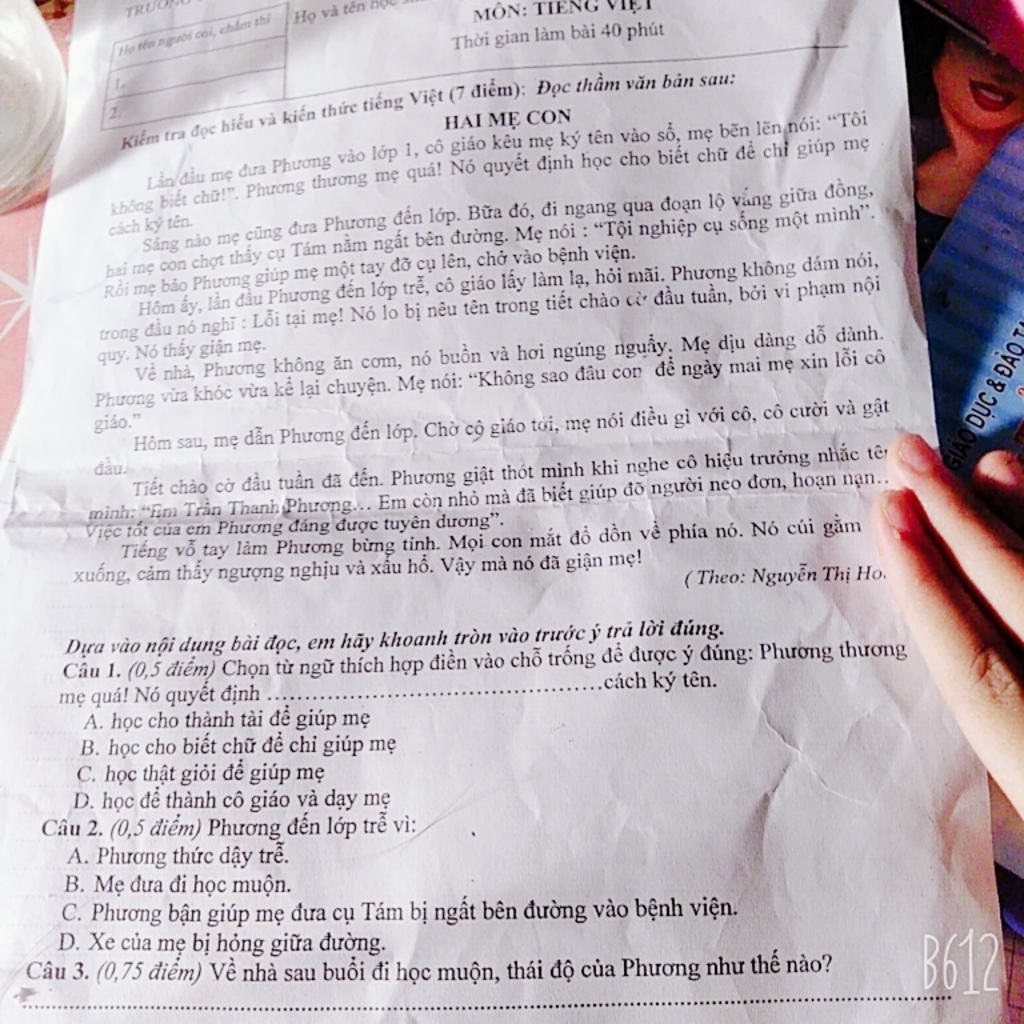 TRƯỜNG
Họ và tên học
MÔN: TIẾNG VIỆT
Họ tên người coi, chấm thi
Thời gian làm bài 40 phút
1.
2.
Kiểm tra đọc hiểu và kiến thức tiếng Việt (7 điểm): Đọc thầm văn bản sau:
HAI MẸ CON
Lần đầu mẹ đưa Phương vào lớp 1, cô giáo kêu mẹ ký tên vào sổ, mẹ bẽn lẽn nói: “Tôi
không biết chữ!”. Phương thương mẹ quá! Nó quyết định học cho biết chữ để chỉ giúp mẹ
cách ký tên.
Sáng nào mẹ cũng đưa Phương đến lớp. Bữa đó, đi ngang qua đoạn lộ vắng giữa đồng,
hai mẹ con chợt thấy cụ Tám nằm ngất bên đường. Mẹ nói : “Tội nghiệp cụ sống một mình”.
Rồi mẹ bảo Phương giúp mẹ một tay đỡ cụ lên, chở vào bệnh viện.
Hôm ấy, lần đầu Phương đến lớp trễ, cô giáo lấy làm lạ, hỏi mãi. Phương không dám nói,
trong đầu nó nghĩ : Lỗi tại mẹ! Nó lo bị nêu tên trong tiết chào cờ đầu tuần, bởi vi phạm nội
quy. Nó thấy giận mẹ.
Về nhà, Phương không ăn cơm, nó buồn và hơi ngúng nguẩy. Mẹ dịu dàng dỗ dành.
Phương vừa khóc vừa kể lại chuyện. Mẹ nói: “Không sao đâu con để ngày mai mẹ xin lỗi cô
giáo.”
Hôm sau, mẹ dẫn Phương đến lớp. Chờ cô giáo tới, mẹ nói điều gì với cô, cô cười và gật
đầu.
Tiết chào cờ đầu tuần đã đến. Phương giật thót mình khi nghe cô hiệu trưởng nhắc tên
mình: “Em Trần Thanh Phương... Em còn nhỏ mà đã biết giúp đỡ người neo đơn, hoạn nạn..
Việc tốt của em Phương đáng được tuyên dương”.
Tiếng vỗ tay làm Phương bừng tỉnh. Mọi con mắt đổ dồn về phía nó. Nó cúi gằm
xuống, cảm thấy ngượng nghịu và xấu hổ. Vậy mà nó đã giận mẹ!
( Theo: Nguyễn Thị
Dựa vào nội dung bài đọc, em hãy khoanh tròn vào trước ý trả lời đúng.
Câu 1. (0,5 điểm) Chọn từ ngữ thích hợp điền vào chỗ trống để được ý đúng: Phường thương
mẹ quá! Nó quyết định ..............................................cách ký tên.
A. học cho thành tài để giúp mẹ
B. học cho biết chữ để chỉ giúp mẹ
C. học thật giỏi để giúp mẹ
D. học để thành cô giáo và dạy mẹ
Câu 2. (0,5 điểm) Phương đến lớp trễ vì:
A. Phương thức dậy trễ.
B. Mẹ đưa đi học muộn.
C. Phương bận giúp mẹ đưa cụ Tám bị ngất bên đường vào bệnh viện.
D. Xe của mẹ bị hỏng giữa đường.
Câu 3. (0,75 điểm) Về nhà sau buổi đi học muộn, thái độ của Phương như thế nào?
GIÁO DỤC & ĐÀO
B612